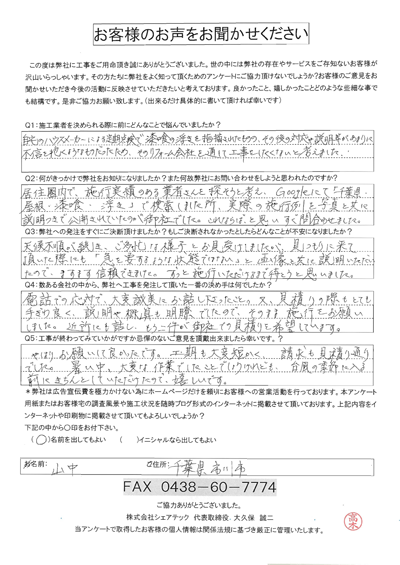 お客様のお声をお聞かせください
この度は弊社に工事をご用命頂き誠にありがとうございました。世の中には弊社の存在やサービスをご存知ないお客様が
沢山いらっしゃいます。その方たちに弊社をよく知って頂くためのアンケートにご協力頂けないでしょうか?お客様のご意見をお
聞かせいただき今後の活動に反映させていただきたいと考えております。良かったこと、嬉しかったことなどの些細な事で
も結構です。是非ご協力お願い致します。(出来るだけ具体的に書いて頂ければ幸いです)
Q1:施工業者を決められる際に前にどんなことで悩んでいましたか?
自宅のハウスメーカーによる定期点検で漆喰の浮きを指摘されたものの、その後の対応や説明等があまりに
不信を抱くようなものだったため、そのリフォーム会社を通して工事をしたくないと考えました。
Q2:何がきっかけで弊社をお知りになりましたか?また何故弊社にお問い合わせをしようと思われたのですか?
居住圏内で、施行実績のある業者さんを探そうと考え、Googleにて「千葉県・
屋根・漆喰・浮き」で検索しました所、実際の施行例を写真と共に
説明つきで公開されていたのが御社でした。これならば、と思いすぐ問合せました。
Q3:弊社への発注をすぐにご決断頂けましたか?もしご決断されなかったとしたらどんなことが不安になりましたか?
天候不順が続き、ご多忙な様子とお見受けしましたが、見つもりに来て
頂いた際にも「急を要するような状態ではない」と画像と共に説明いただい
たので、ますます信頼できました。ずっと施行いただけるまで待とうと思いました。
Q4:数ある会社の中から、弊社へ工事を発注して頂いた一番の決め手は何でしたか?
電話での応対で、大変誠実にお話し下さったこと。又、見積りの際もとても
手ぎわ良く、説明や機具も明瞭でしたので、そのまま施行をお願い
しました。近所にも話し、もう一件が御社での見積りを希望しています。
Q5:工事が終わってみていかがですか忌憚のないご意見を頂戴出来ましたら幸いです。?
やはりお願いして良かったです。工期も大変短かく、請求も見積り通り
でした。暑い中、大変な作業でしたことでしょうけれども、台風の季節に入る
前にきちんとしていただけたので、嬉しいです。
*弊社は広告宣伝費を極力かけない為にホームページだけを頼りにお客様への営業活動を行っております。本アンケート
用紙またはお客様宅の調査風景や施工状況を随時ブログ形式のインターネットに掲載させて頂いております。上記内容をイ
ンターネットや印刷物に掲載させて頂いてもよろしいでしょうか?
下記の中から〇印をお付け下さい。
(〇)名前を出してもよい ( )イニシャルなら出してもよい
お名前: 山中 ご住所: 千葉県市川市
FAX 0438-60-7774
ご協力ありがとうございました。
株式会社シェアテック 代表取締役 大久保 誠二
当アンケートで取得したお客様の個人情報は関係法規に基づき厳正に管理いたします。